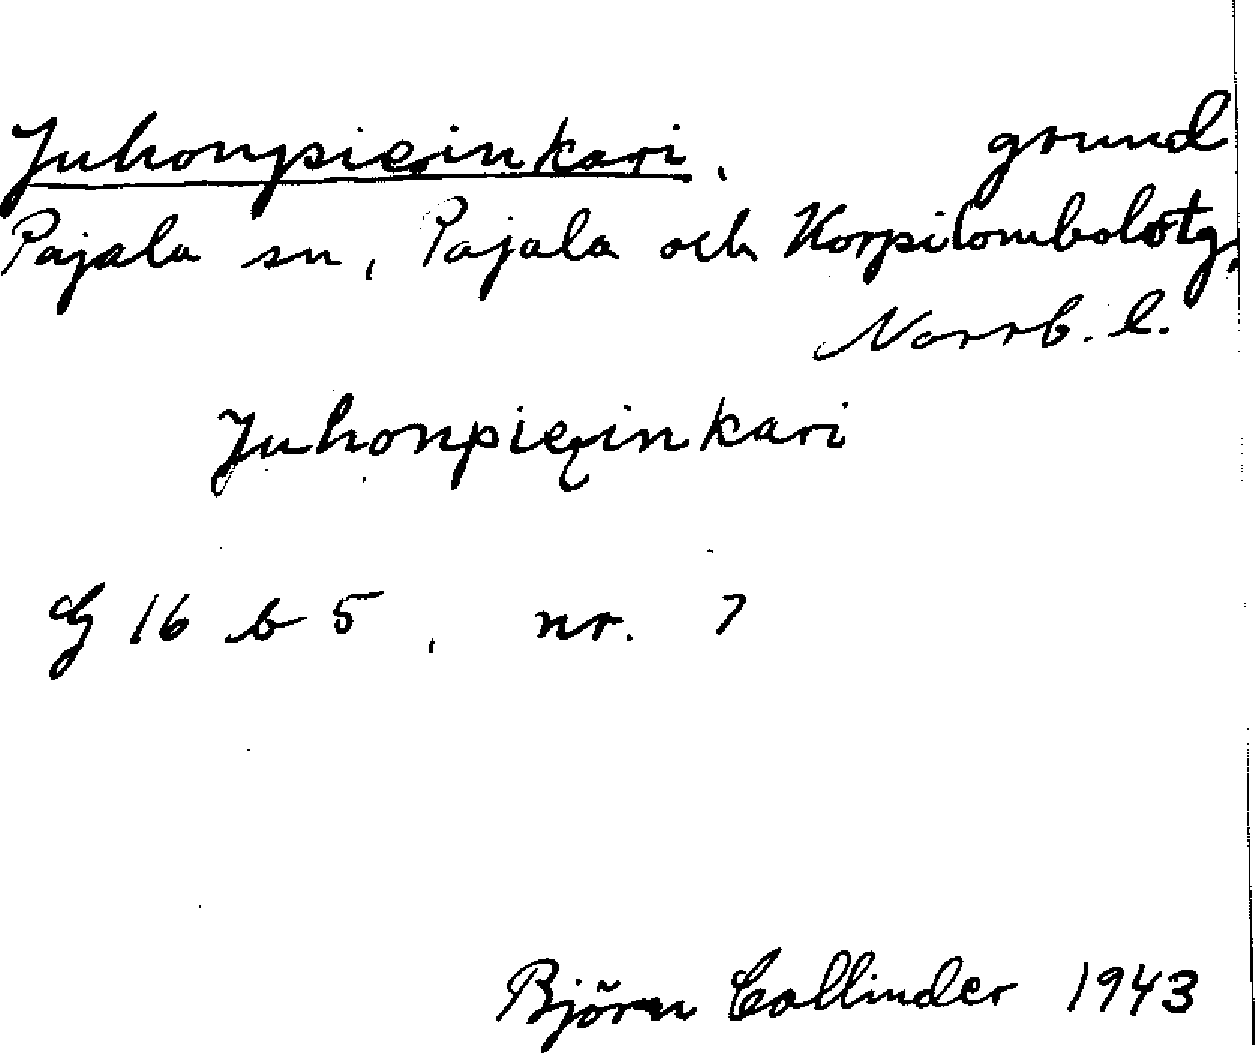 Juhonpieɾinkari, grund
Pajala sn, Pajala och Korpilombolo tg,
Norrb. l.
Juhonpieɾinkari
G 16 b 5, nr. 7
Björn Collinder 1943